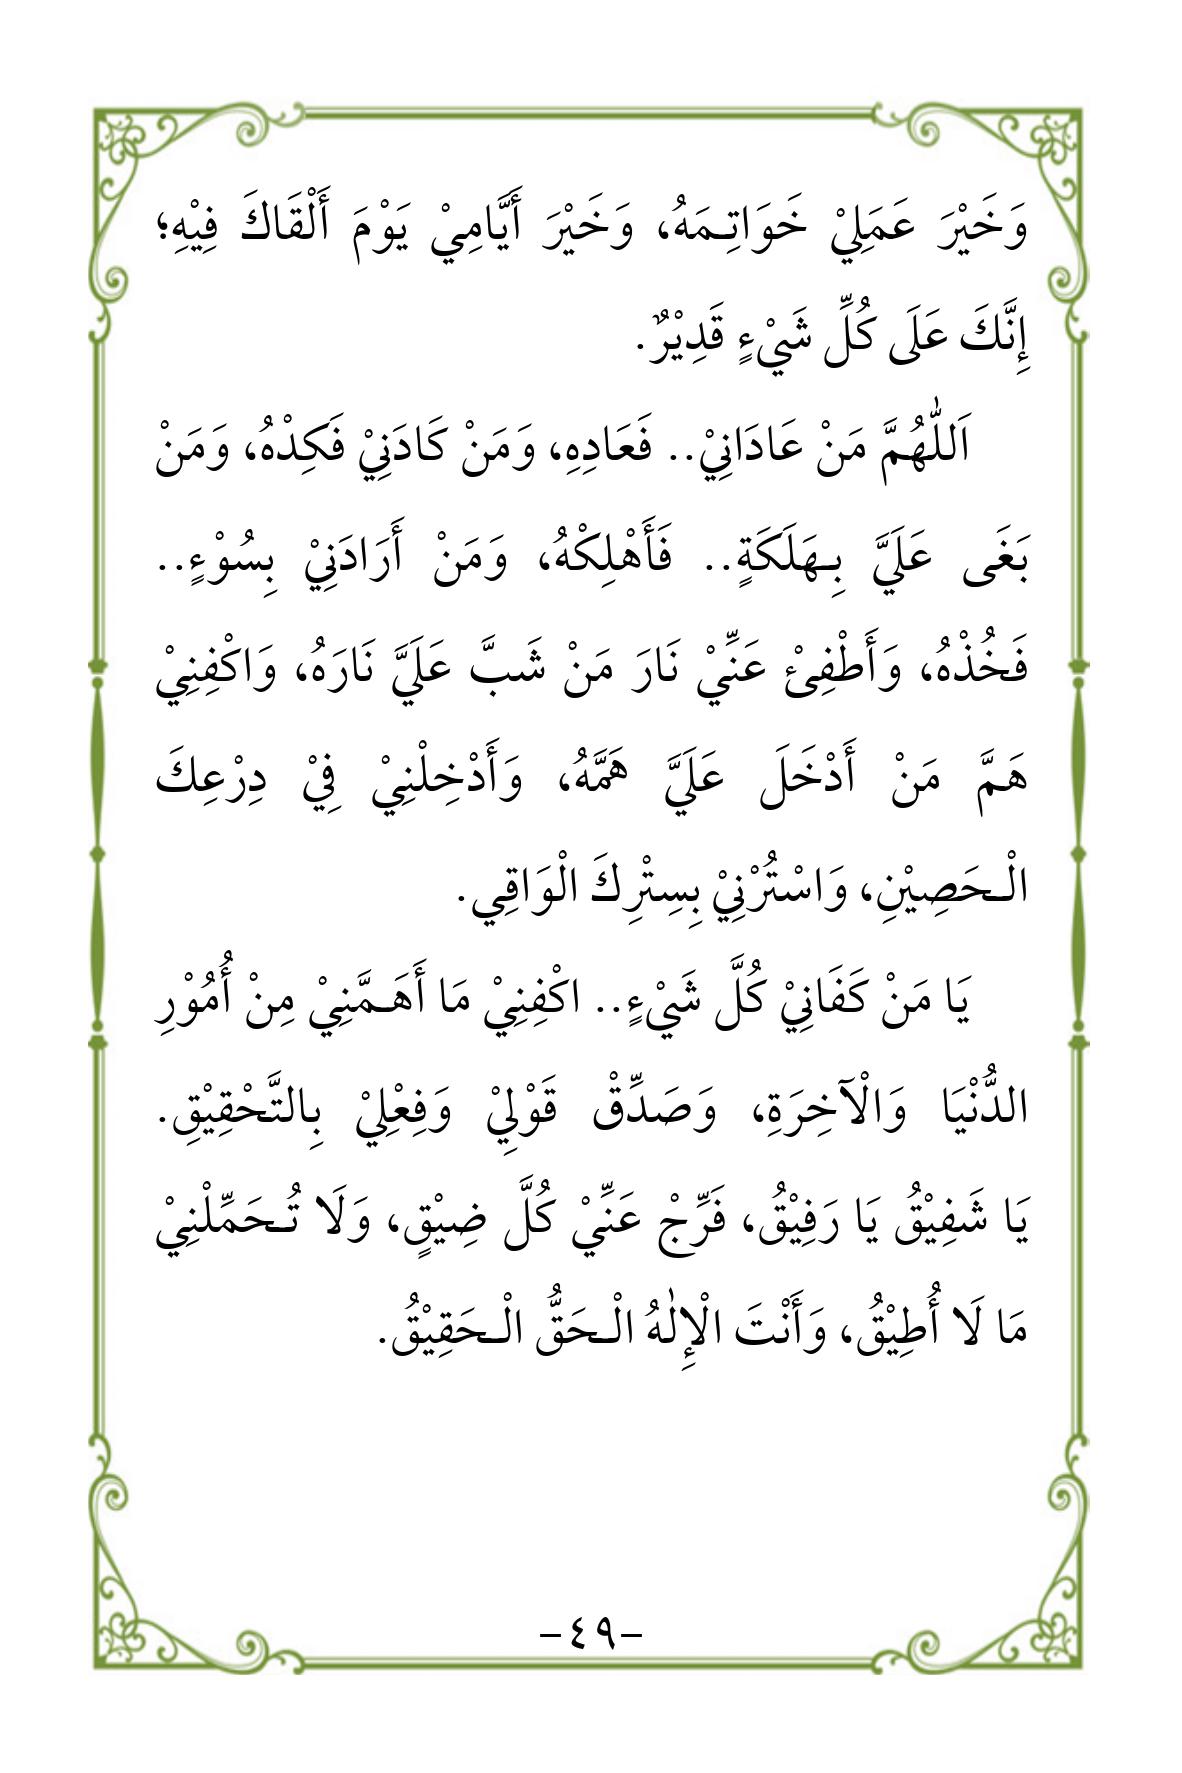 وَخَيْرَ عَمَلِيْ خَوَاتِـمَهُ، وَخَيْرَ أَيَّامِيْ يَوْمَ أَلْقَاكَ فِيْهِ؛
إِنَّكَ عَلَى كُلِّ شَيْءٍ قَدِيْرٌ.
اَللّٰهُمَّ مَنْ عَادَانِيْ.. فَعَادِهِ، وَمَنْ كَادَنِيْ فَكِدْهُ، وَمَنْ
بَغَى عَلَيَّ بِـهَلَكَةٍ.. فَأَهْلِكْهُ، وَمَنْ أَرَادَنِيْ بِسُوْءٍ..
فَخُذْهُ، وَأَطْفِئْ عَنِّيْ نَارَ مَنْ شَبَّ عَلَيَّ نَارَهُ، وَاكْفِنِيْ
هَمَّ مَنْ أَدْخَلَ عَلَيَّ هَمَّهُ، وَأَدْخِلْنِيْ فِيْ دِرْعِكَ
الْـحَصِيْنِ، وَاسْتُرْنِيْ بِسِتْرِكَ الْوَاقِي.
يَا مَنْ كَفَانِيْ كُلَّ شَيْءٍ.. اكْفِنِيْ مَا أَهَـمَّنِيْ مِنْ أُمُوْرِ
الدُّنْيَا وَالْآخِرَةِ، وَصَدِّقْ قَوْلِيْ وَفِعْلِيْ بِالتَّحْقِيْقِ.
يَا شَفِيْقُ يَا رَفِيْقُ، فَرِّجْ عَنِّيْ كُلَّ ضِيْقٍ، وَلَا تُـحَمِّلْنِيْ
مَا لَا أُطِيْقُ، وَأَنْتَ الْإِلٰهُ الْـحَقُّ الْـحَقِيْقُ.
-٤٩-